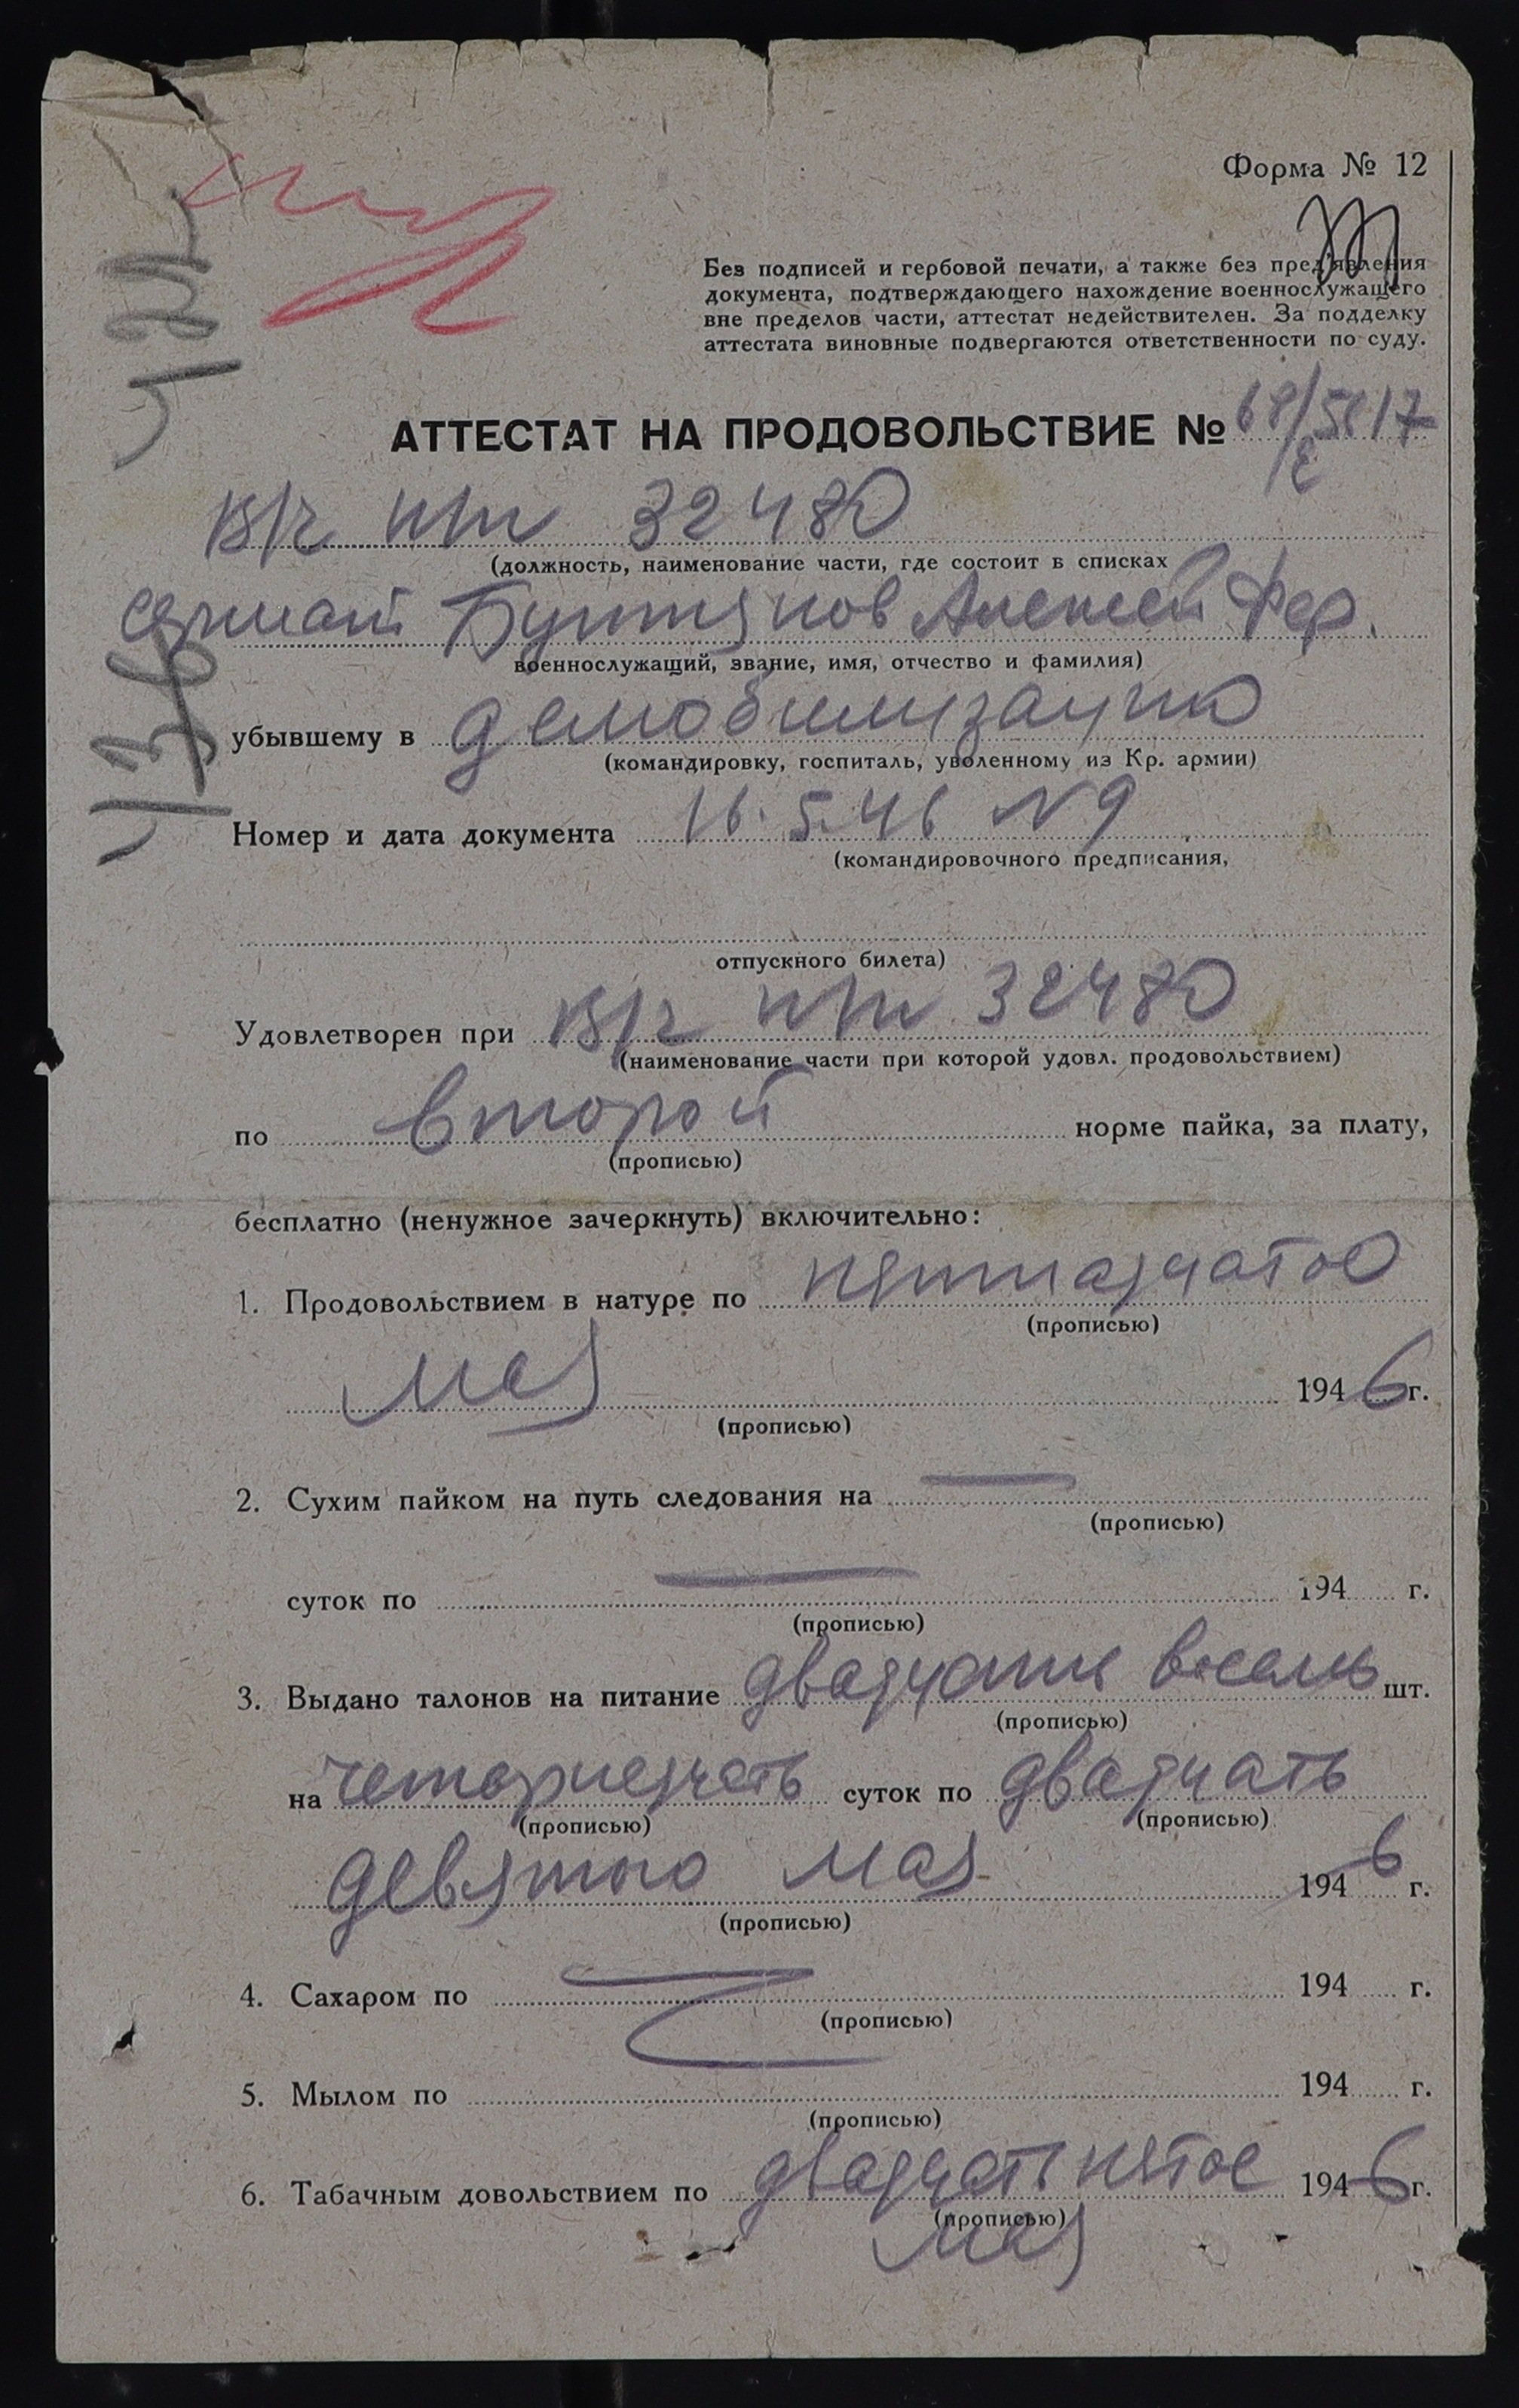 Форма № 12
Без подписей и гербовой печати, а также без пред'явления
документа, подтверждающего нахождение военнослужащего
вне пределов части, аттестат недействителен. За подделку
аттестата виновные подвергаются ответственности по суду.
АТТЕСТАТ НА ПРОДОВОЛЬСТВИЕ №
в/ч п/п 32480
(должность, наименование части, где состоит в списках
сержант Алексей Фер.
военнослужащий, звание, имя, отчество и фамилия)
убывшему в демобилизацию
(командировку, госпиталь, уволенному из Кр. армии)
Номер и дата документа 16.5.46 N 9
(командировочного предписания,
отпускного билета)
Удовлетворен при в/ч п/п 32480
(наименование части при которой удовл. продовольствием)
по второй норме пайка, за плату,
(прописью)
бесплатно (ненужное зачеркнуть) включительно:
1. Продовольствием в натуре по пятнадцатое
(прописью)
мая 1946 г.
(прописью)
2. Сухим пайком на путь следования на —
(прописью)
суток по — 194 г.
(прописью)
3. Выдано талонов на питание двадцать восемь шт.
(прописью)
на четорнадцать суток по двадцать
(прописью) (прописью)
девятого мая 1946 г.
(прописью)
4. Сахаром по 194 г.
(прописью)
5. Мылом по 194 г.
(прописью)
6. Табачным довольствием по двадцать пятое 1946 г.
(прописью)
мая